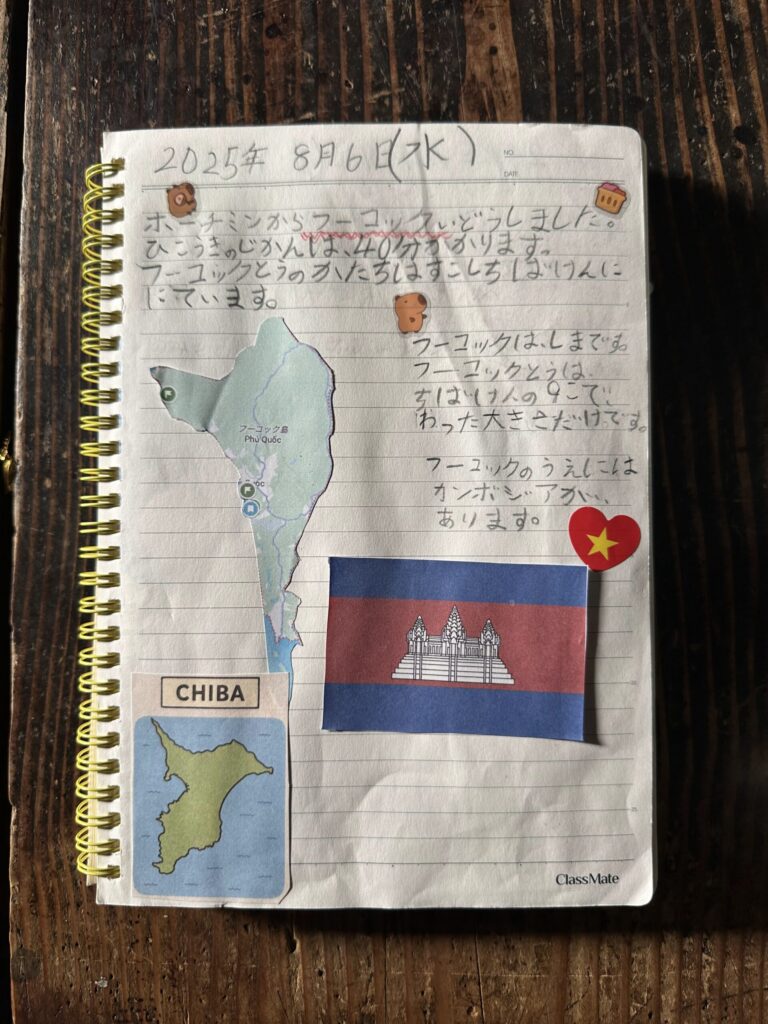 2025年 8月6日(水)
NO.
DATE
ホーチミンからフーコックいどうしました。
ひこうきのじかんは、40分かかります。
フーコックとうのかたちはすこしちばけんに
にています。
フーコックは、しまです。
フーコックとうは、
ちばけ人の9こで、
わった大きさだけです。
フーコックのうえには
カンボジアが、
あります。
フーコック島
Phú Quốc
CHIBA
ClassMate